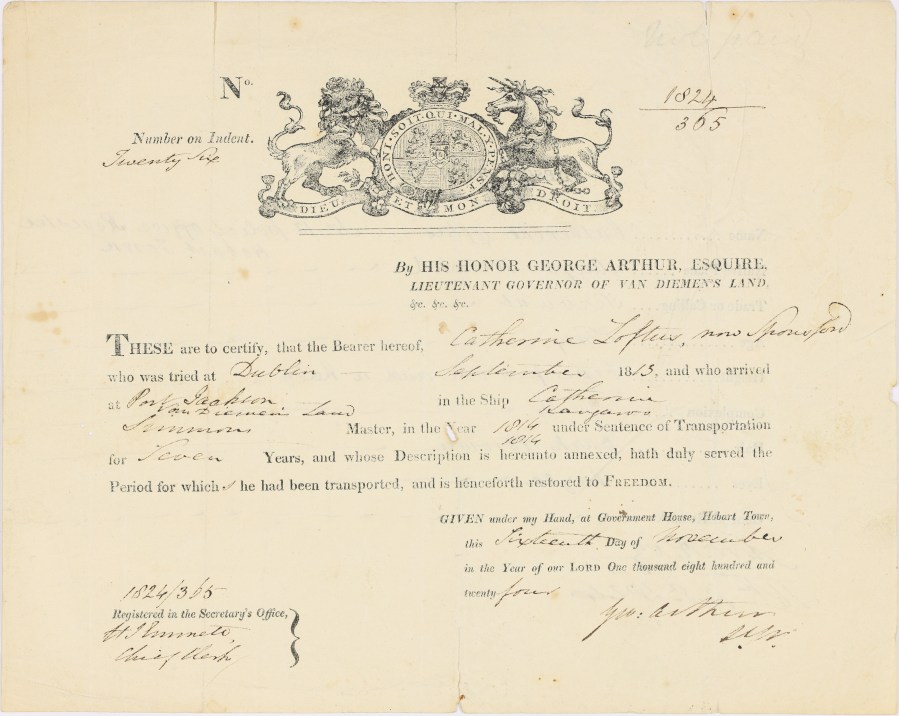 No.
1824
365
Number on Indent.
Twenty Six
HONI · SOIT · QUI · MAL · Y · PENSE
DIEU ET MON DROIT
By HIS HONOR GEORGE ARTHUR, ESQUIRE,
LIEUTENANT GOVERNOR OF VAN DIEMEN'S LAND,
&c. &c. &c.
THESE are to certify, that the Bearer hereof, Catherine Loftus, now Sponsford
who was tried at Dublin September 1813, and who arrived
at Port Jackson in the Ship Catherine
Van Diemens Land Kangaroo
Simmons Master, in the Year 1814 under Sentence of Transportation
1814
for Seven Years, and whose Description is hereunto annexed, hath duly served the
Period for which s he had been transported, and is henceforth restored to FREEDOM.
GIVEN under my Hand, at Government House, Hobart Town,
this Sixteenth Day of November
in the Year of our LORD One thousand eight hundred and
twenty-four
1824/365
Geo: Arthur
Registered in the Secretary's Office,
H J Emmett
Chief Clerk